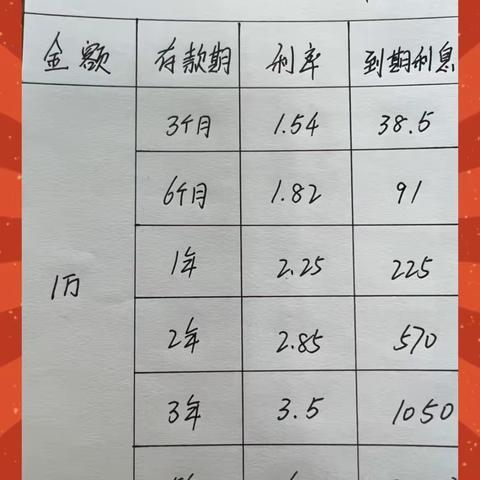 金额 存款期 利率 到期利息
3个月 1.54 38.5
6个月 1.82 91
1年 2.25 225
1万
2年 2.85 570
3年 3.5 1050